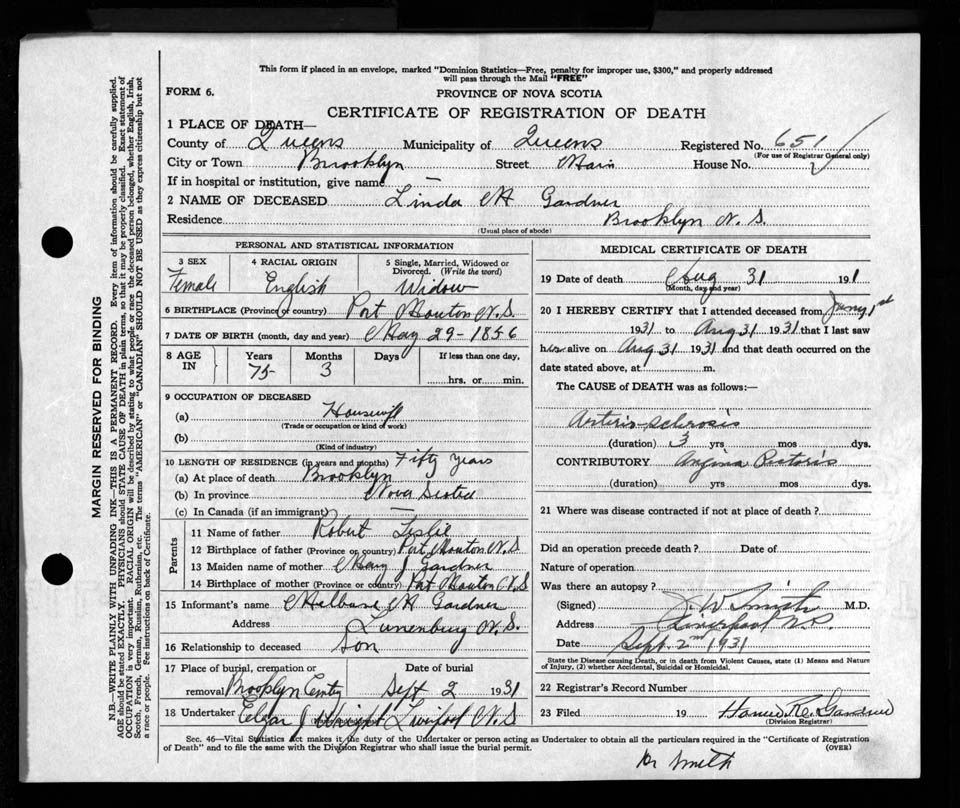 This form if placed in an envelope, marked "Dominion Statistics—Free, penalty for improper use, $300," and properly addressed
will pass through the Mail "FREE"
FORM 6.
PROVINCE OF NOVA SCOTIA
CERTIFICATE OF REGISTRATION OF DEATH
1 PLACE OF DEATH—
County of Queens Municipality of Queens Registered No. 651
(For use of Registrar General only)
City or Town Brooklyn Street Main House No.
If in hospital or institution, give name —
2 NAME OF DECEASED Linda H Gardner
Residence Brooklyn N.S.
(Usual place of abode)
PERSONAL AND STATISTICAL INFORMATION
3 SEX
Female
4 RACIAL ORIGIN
English
5 Single, Married, Widowed or
Divorced. (Write the word)
Widow
6 BIRTHPLACE (Province or country) Port Mouton N.S.
7 DATE OF BIRTH (month, day and year) May 29-1856
8 AGE IN
Years Months Days If less than one day,
75 3
hrs. or min.
9 OCCUPATION OF DECEASED
(a) Housewife
(Trade or occupation or kind of work)
(b)
(Kind of industry)
10 LENGTH OF RESIDENCE (in years and months) Fifty Years
(a) At place of death Brooklyn
(b) In province Nova Scotia
(c) In Canada (if an immigrant) —
Parents
11 Name of father Robert Leslie
12 Birthplace of father (Province or country) Port Mouton N.S
13 Maiden name of mother Mary J Gardner
14 Birthplace of mother (Province or country) Port Mouton N.S
15 Informant's name H Gardner
Address Lunenburg N.S.
16 Relationship to deceased Son
17 Place of burial, cremation or Date of burial
removal Brooklyn Cemty Sept 2 1931
18 Undertaker J Wright Liverpool N.S
MEDICAL CERTIFICATE OF DEATH
19 Date of death Aug 31 191
(Month, day and year)
20 I HEREBY CERTIFY that I attended deceased from
1931 to Aug 31 1931 that I last saw
h alive on Aug 31 1931 and that death occurred on the
date stated above, at m.
The CAUSE of DEATH was as follows:—
(duration) 3 yrs mos dys.
CONTRIBUTORY Angina Pectoris
(duration) yrs mos dys.
21 Where was disease contracted if not at place of death?
Did an operation precede death? Date of
Nature of operation
Was there an autopsy?
(Signed) J. W Smith M.D.
Address Liverpool N.S.
Date Sept. 2nd 1931
State the Disease causing Death, or in death from Violent Causes, state (1) Means and Nature
of Injury, (2) whether Accidental, Suicidal or Homicidal.
22 Registrar's Record Number
23 Filed 19 Gardner
(Division Registrar)
Sec. 46—Vital Statistics act makes it the duty of the Undertaker or person acting as Undertaker to obtain all the particulars required in the "Certificate of Registration
of Death" and to file the same with the Division Registrar who shall issue the burial permit. (OVER)
Dr Smith
MARGIN RESERVED FOR BINDING
N.B.—WRITE PLAINLY WITH UNFADING INK—THIS IS A PERMANENT RECORD. Every item of information should be carefully supplied.
AGE should be stated EXACTLY. PHYSICIANS should STATE CAUSE OF DEATH in plain terms, so that it may be properly classified. Exact statement of
OCCUPATION is very important. RACIAL ORIGIN will be described by stating to what people or race the deceased person belonged, whether English, Irish,
Scotch, French, German, Russian, Ruthenian, etc. The terms "AMERICAN" or "CANADIAN" SHOULD NOT BE USED as they express citizenship but not
a race or people. Fee instructions on back of Certificate.